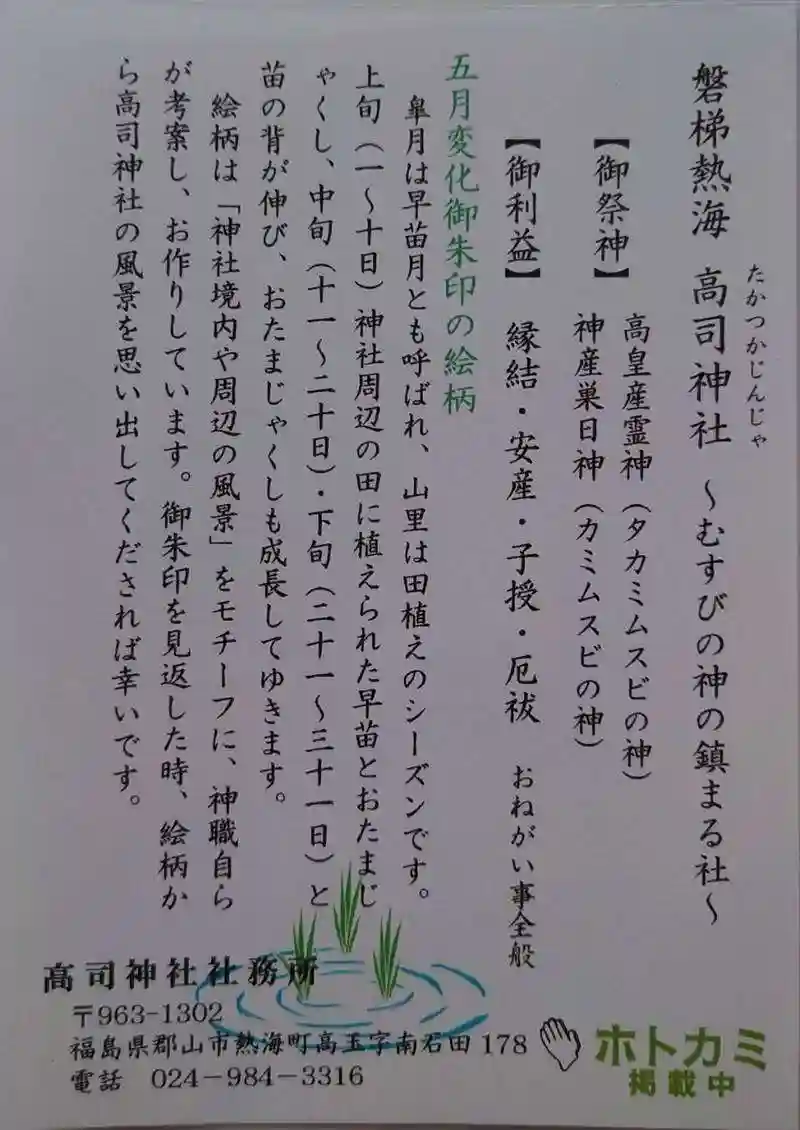 たかつかじんじゃ
磐梯熱海 高司神社 〜むすびの神の鎮まる社〜
【御祭神】 高皇産霊神(タカミムスビの神)
神産巣日神(カミムスビの神)
【御利益】 縁結・安産・子授・厄祓 おねがい事全般
五月変化御朱印の絵柄
皐月は早苗月とも呼ばれ、山里は田植えのシーズンです。
上旬(一〜十日)神社周辺の田に植えられた早苗とおたまじ
ゃくし、中旬(十一〜二十日)・下旬(二十一〜三十一日)と
苗の背が伸び、おたまじゃくしも成長してゆきます。
絵柄は「神社境内や周辺の風景」をモチーフに、神職自ら
が考案し、お作りしています。御朱印を見返した時、絵柄か
ら高司神社の風景を思い出してくだされば幸いです。
高司神社社務所
〒963-1302
福島県郡山市熱海町高玉字南石田 178
電話 024-984-3316
ホトカミ
掲載中